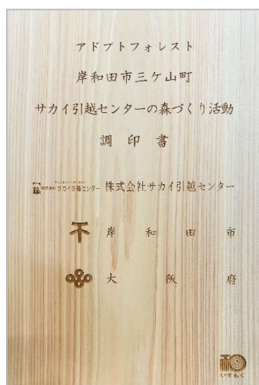 アドプトフォレスト
岸和田市三ケ山町
サカイ引越センターの森づくり活動
調印書
サカイ引越センター 株式会社サカイ引越センター
岸和田市
大阪府
いずもく